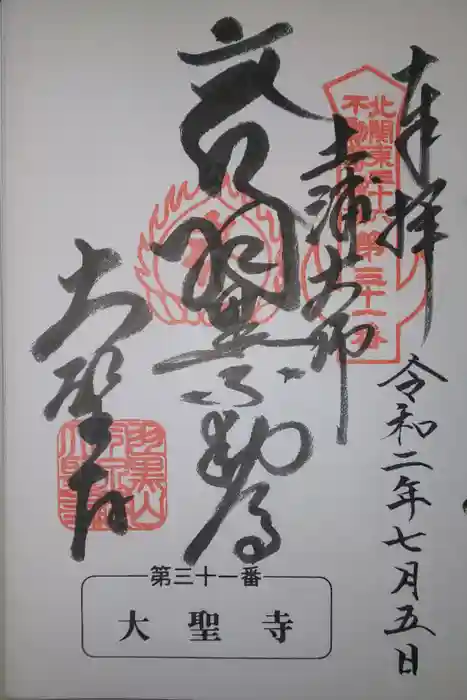 奉拝
令和二年七月五日
北關東三十六
不動尊 第三十一番
土浦大師
翼不動尊
大聖寺
羽黒山
第三十一番
大聖寺